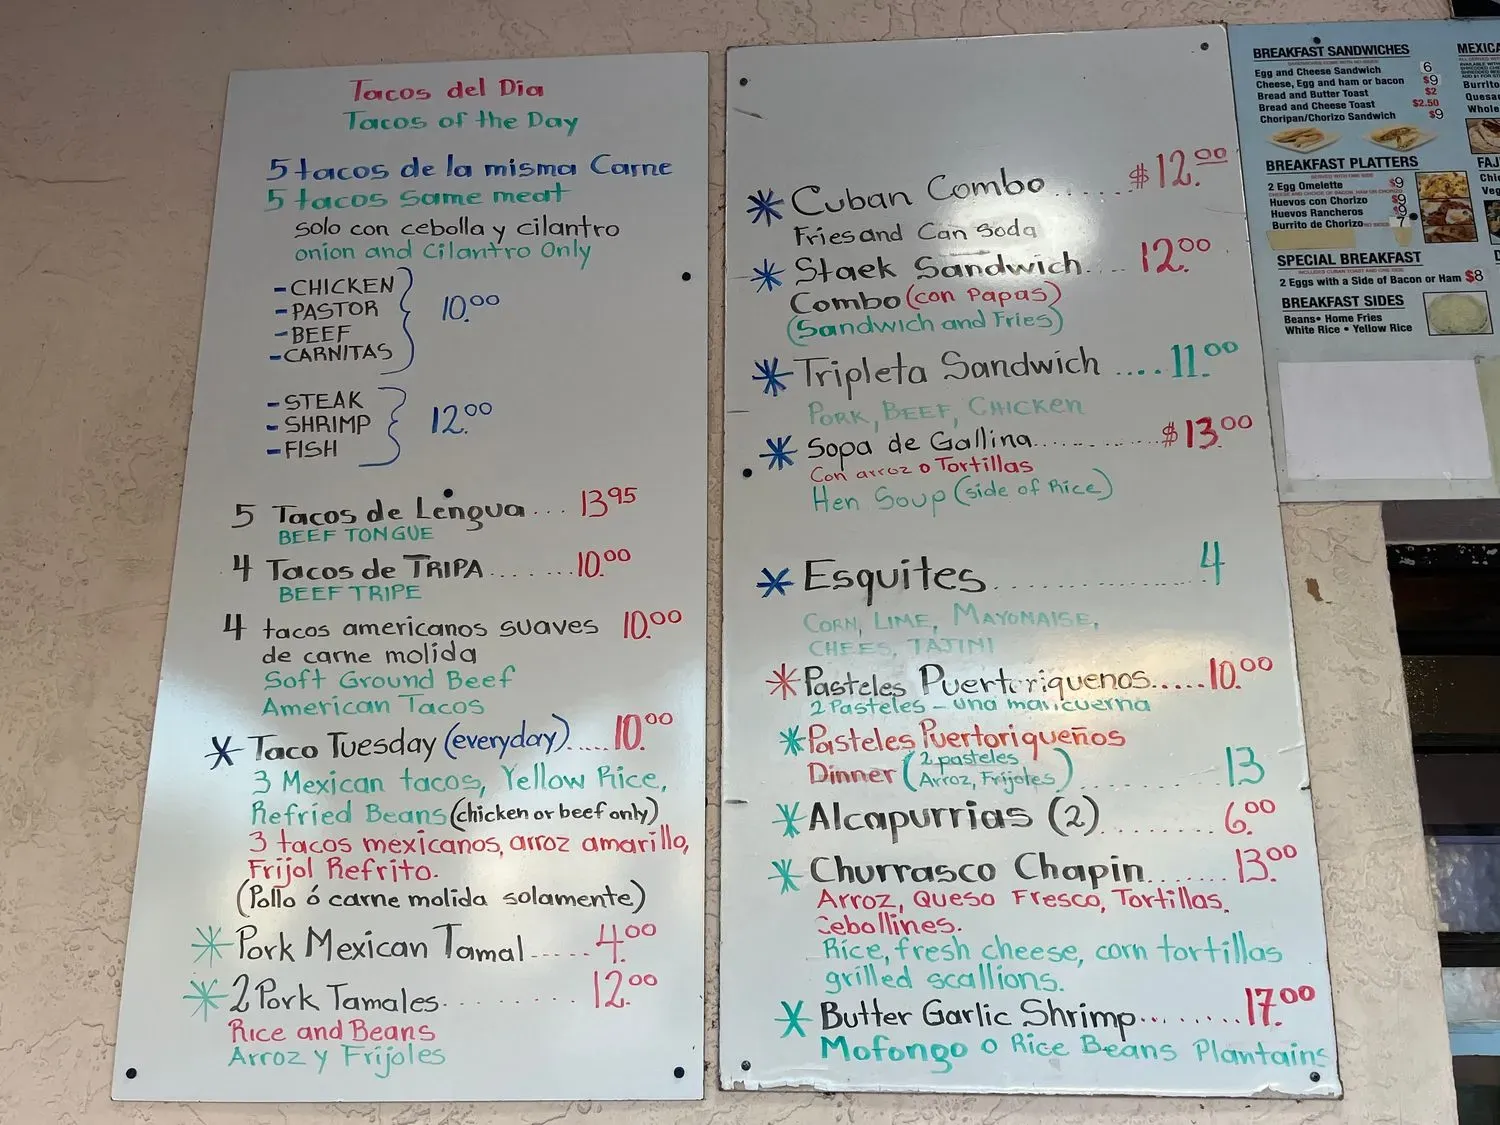 Tacos del Dia
Tacos of the Day
5 tacos de la misma Carne
5 tacos same meat
solo con cebolla y cilantro
onion and Cilantro Only
- CHICKEN
- PASTOR
- BEEF
- CARNITAS
10.00
- STEAK
- SHRIMP
- FISH
12.00
5 Tacos de Lengua... 13.95
BEEF TONGUE
4 Tacos de TRIPA....... 10.00
BEEF TRIPE
4 tacos americanos suaves 10.00
de carne molida
Soft Ground Beef
American Tacos
* Taco Tuesday (everyday)..... 10.00
3 Mexican tacos, Yellow Rice,
Refried Beans (chicken or beef only)
3 tacos mexicanos, arroz amarillo,
Frijol Refrito.
(Pollo ó carne molida solamente)
* Pork Mexican Tamal...... 4.00
* 2 Pork Tamales......... 12.00
Rice and Beans
Arroz y Frijoles
* Cuban Combo...... $12.00
Fries and Can Soda
* Staek Sandwich.... 12.00
Combo (con Papas)
(Sandwich and Fries)
* Tripleta Sandwich .... 11.00
PORK, BEEF, CHICKEN
* Sopa de Gallina............ $13.00
Con arroz o Tortillas
Hen Soup (side of Rice)
* Esquites................ 4
CORN, LIME, MAYONAISE,
CHEES, TAJINI
* Pasteles Puertoriquenos...... 10.00
2 Pasteles - una
* Pasteles Puertoriqueños
Dinner (2 pasteles Arroz, Frijoles)............ 13
* Alcapurrias (2).......... 6.00
* Churrasco Chapin........ 13.00
Arroz, Queso Fresco, Tortillas,
Cebollines.
Rice, fresh cheese, corn tortillas
grilled scallions.
* Butter Garlic Shrimp........ 17.00
Mofongo o Rice Beans Plantains
BREAKFAST SANDWICHES
Egg and Cheese Sandwich 6
Cheese, Egg and ham or bacon $9
Bread and Butter Toast $2
Bread and Cheese Toast $2.50
Choripan/Chorizo Sandwich $9
BREAKFAST PLATTERS
2 Egg Omelette $9
Huevos con Chorizo $9
Huevos Rancheros $9
Burrito de Chorizo 7
SPECIAL BREAKFAST
INCLUDES CUBAN TOAST AND ONE SIDE
2 Eggs with a Side of Bacon or Ham $8
BREAKFAST SIDES
Beans • Home Fries
White Rice • Yellow Rice
MEXICA
Burrito
Quesa
Whole
FAJ
Chi
Veg